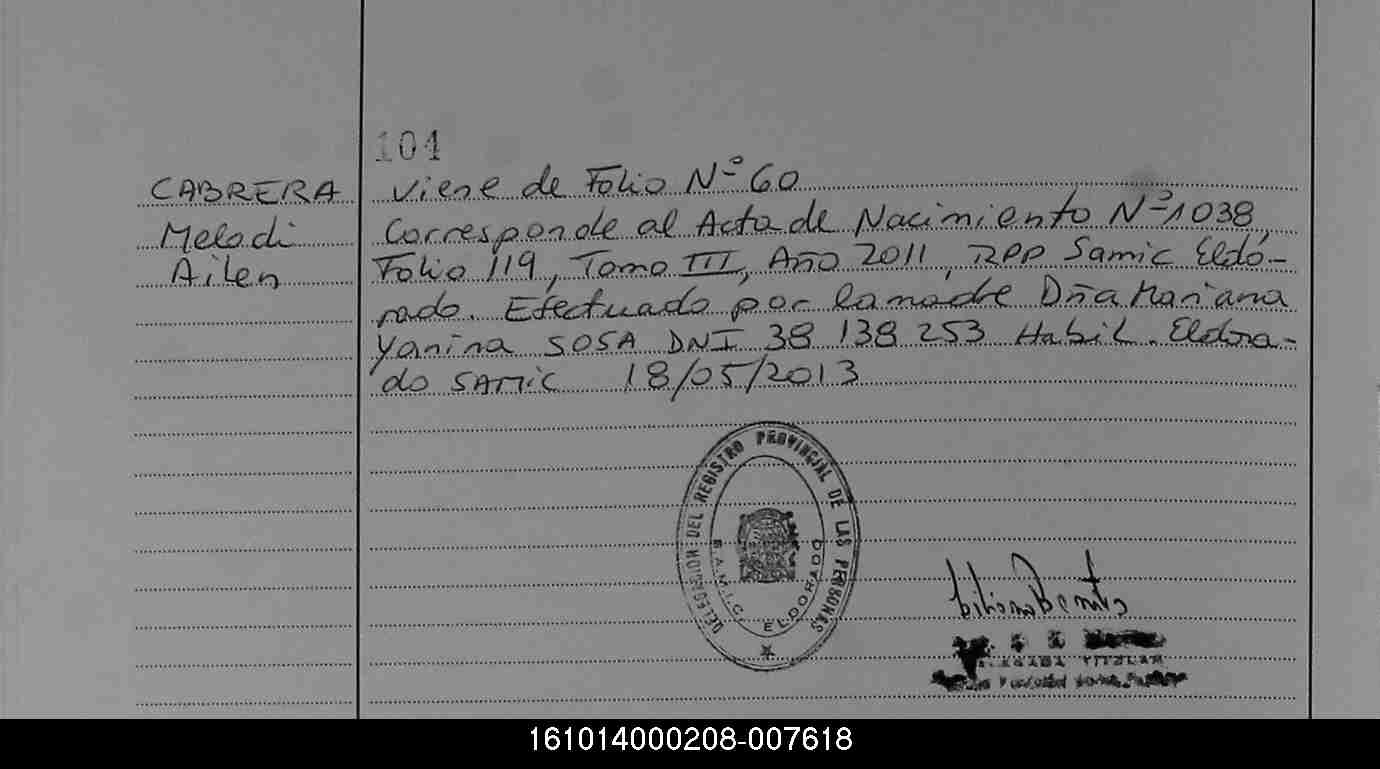 104
CABRERA
Melodi
Ailen
Viene de Folio Nº 60
Corresponde al Acta de Nacimiento Nº 1038,
Folio 119, Tomo III, Año 2011, RPP Samic Eldo-
rado. Efectuado por la madre Dña Mariana
Yanina SOSA DNI 38 138 253 Habil. Eldora-
do SAMIC 18/05/2013
DELEGACION DEL REGISTRO PROVINCIAL DE LAS PERSONAS
S.A.M.I.C. ELDORADO
161014000208-007618